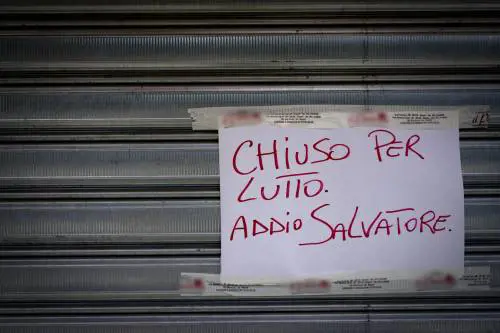 CHIUSO PER
LUTTO.
ADDIO SALVATORE.